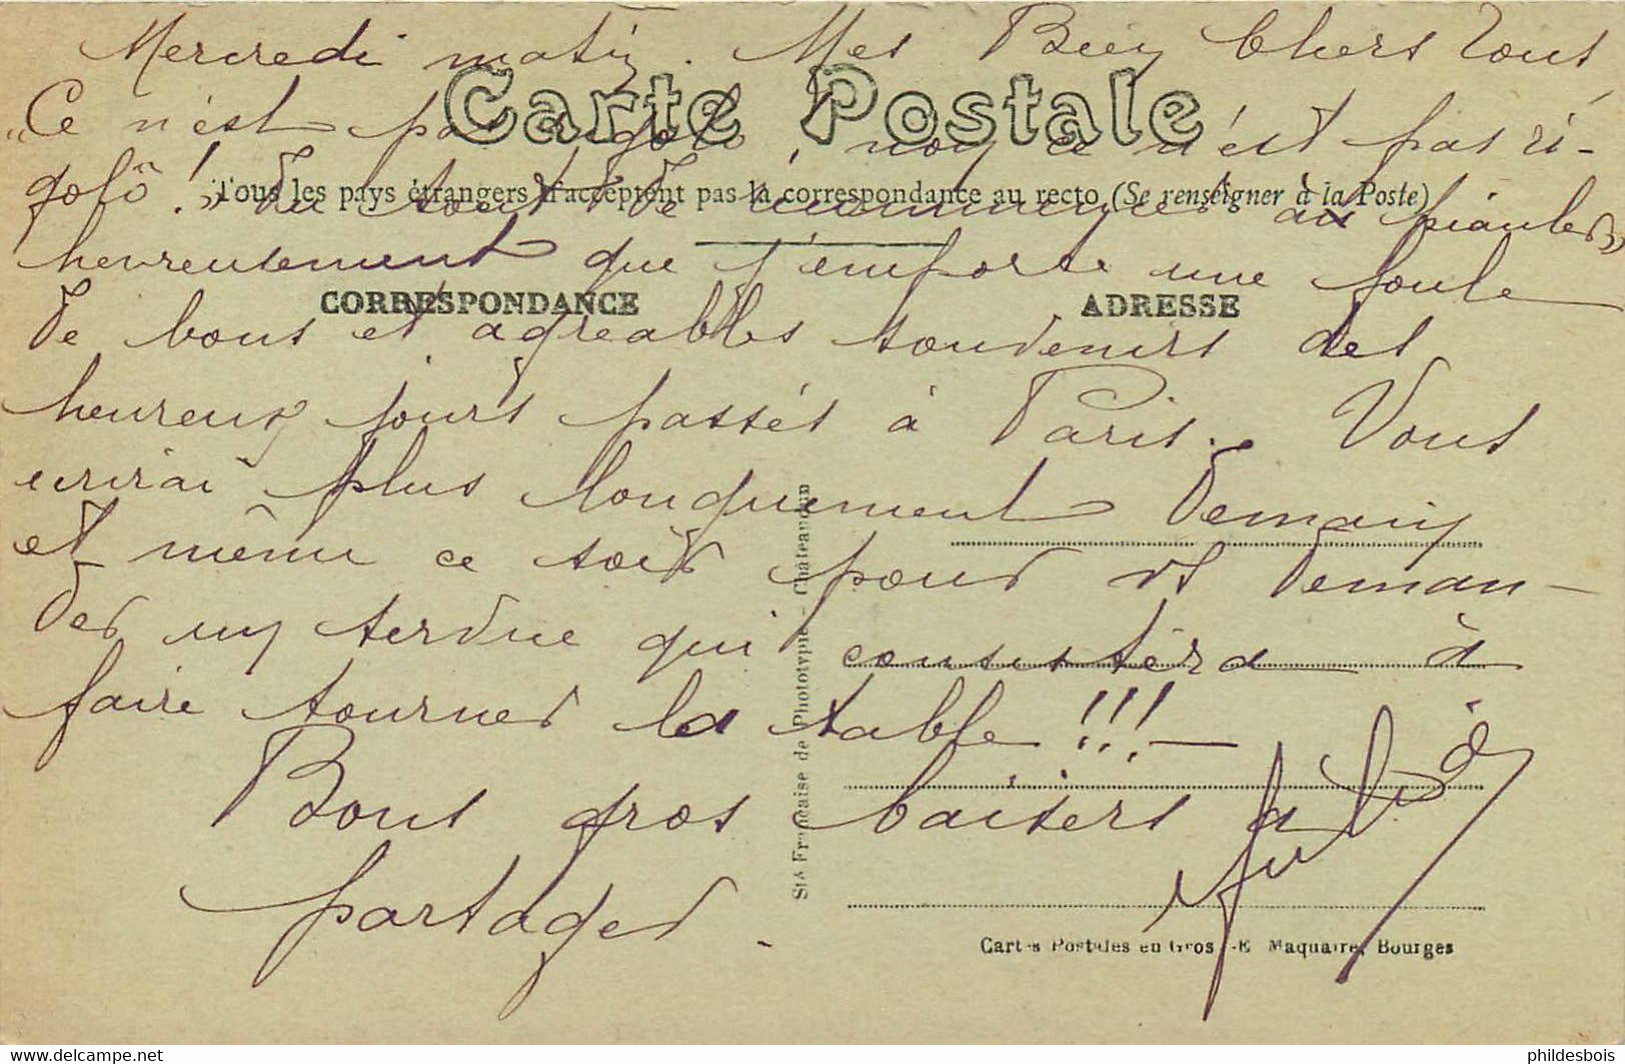 Mercredi matin. Mes Bien Chers Tous
Carte Postale
"Ce n'est pas rigolo, non ce n'est pas ri-
golô!" Tous les pays étrangers n'acceptent pas la correspondance au recto (Se renseigner à la Poste)
Du tout de recommencer à piauler"
heureusement que j'emporte une foule
CORRESPONDANCE ADRESSE
de bons et agréables souvenirs des
heureux jours passés à Paris. Vous
écrirai plus longuement demain
et même ce soir pour vs deman-
der un service qui consistera à
faire tourner la table!!!—
Bons gros baisers à
partager.
Sté Française de Phototypie - Châteaudun
Cartes Postales en Gros - E. Maquaire, Bourges
phildesbois